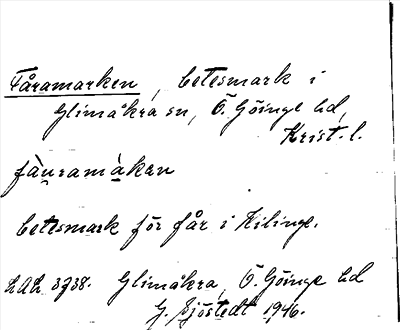 Fåramarken, betesmark i
Glimåkra sn, Ö. Göinge hd,
Krist. l.
fàu̯ramàkan
betesmark för får i Hilinge.
LAL 3738. Glimåkra, Ö. Göinge hd
G. Sjöstedt 1946.